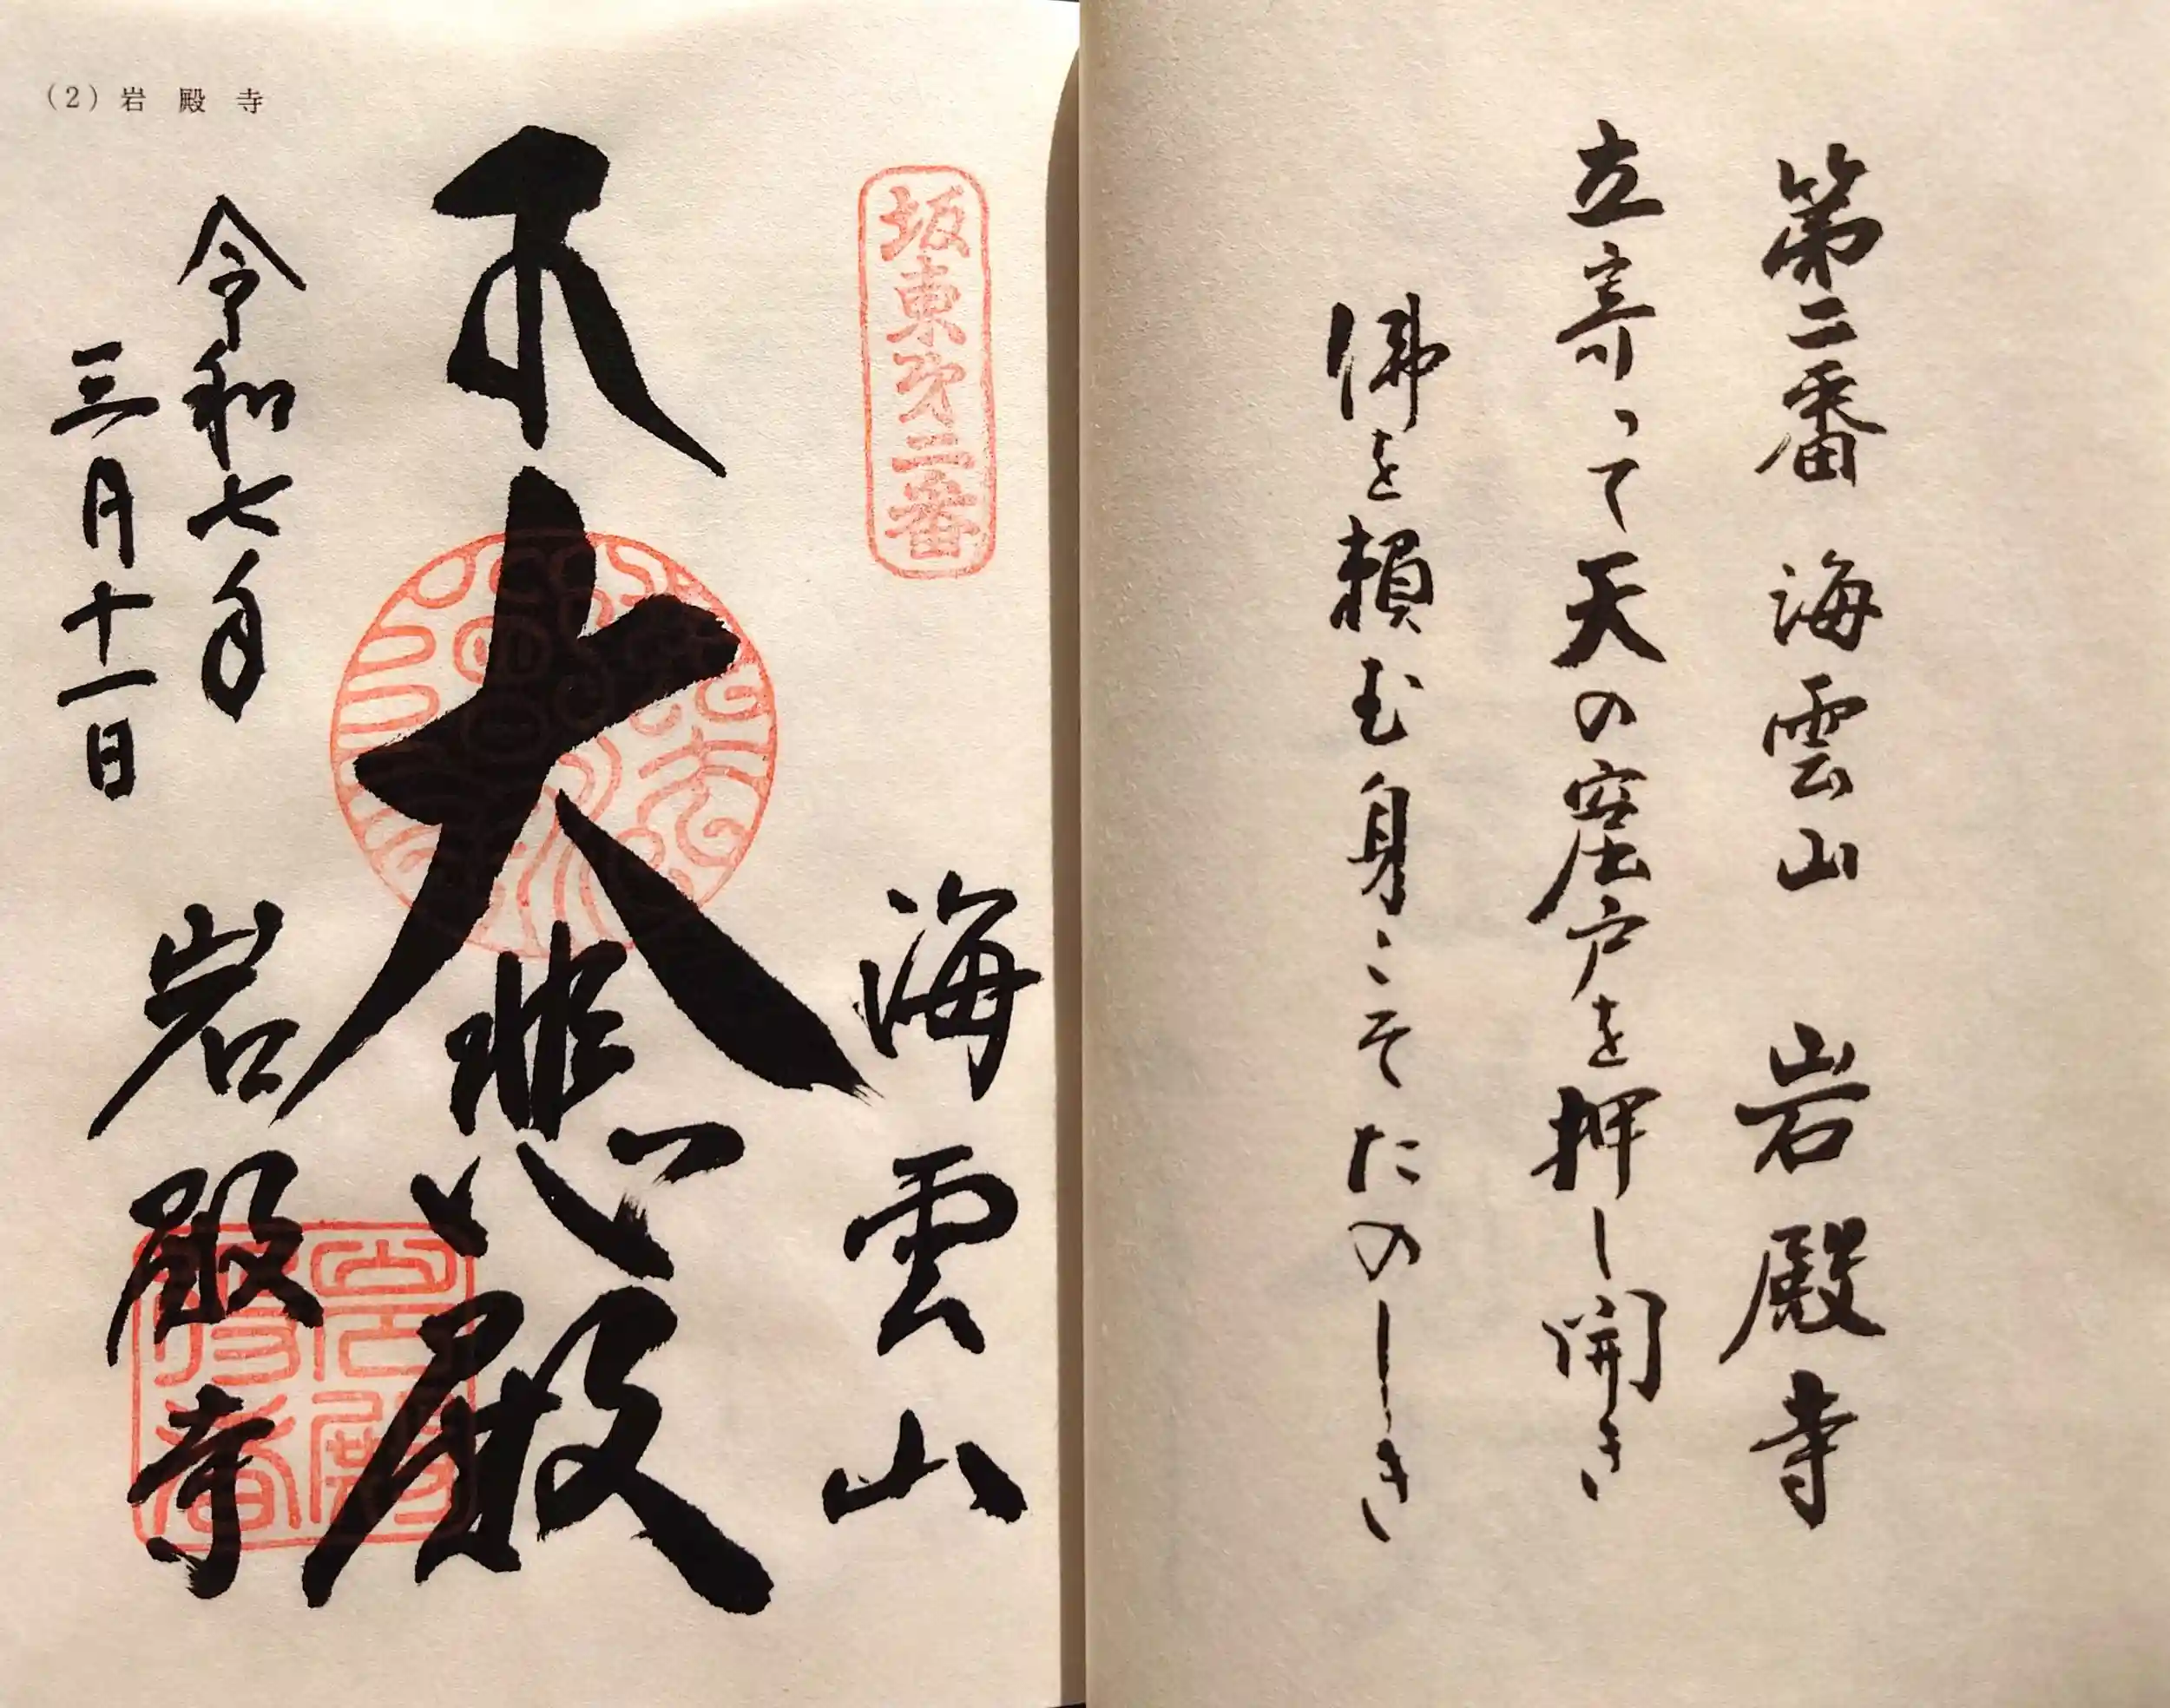 第二番 海雲山 岩殿寺
立寄って天の窟戸を押し開き
佛を頼む身こそたのしき
(2) 岩殿寺
坂東㐧二番
海雲山
大悲殿
令和七年
三月十一日
岩殿寺